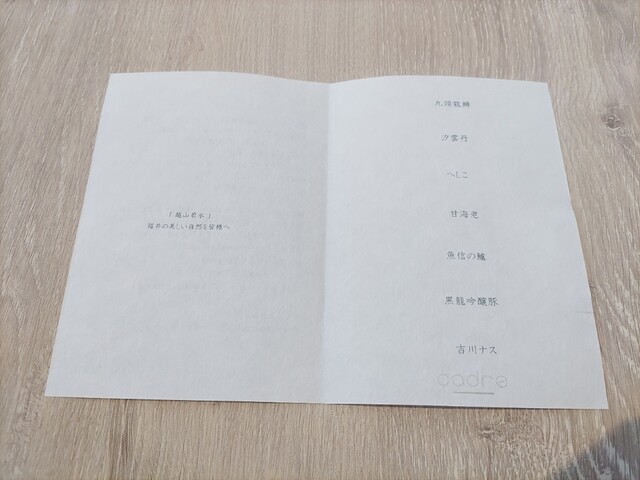 「越山若水」
福井の美しい自然を皆様へ
九頭龍鱒
汐雲丹
へしこ
甘海老
魚信の鱸
黒龍吟醸豚
吉川ナス
cadre